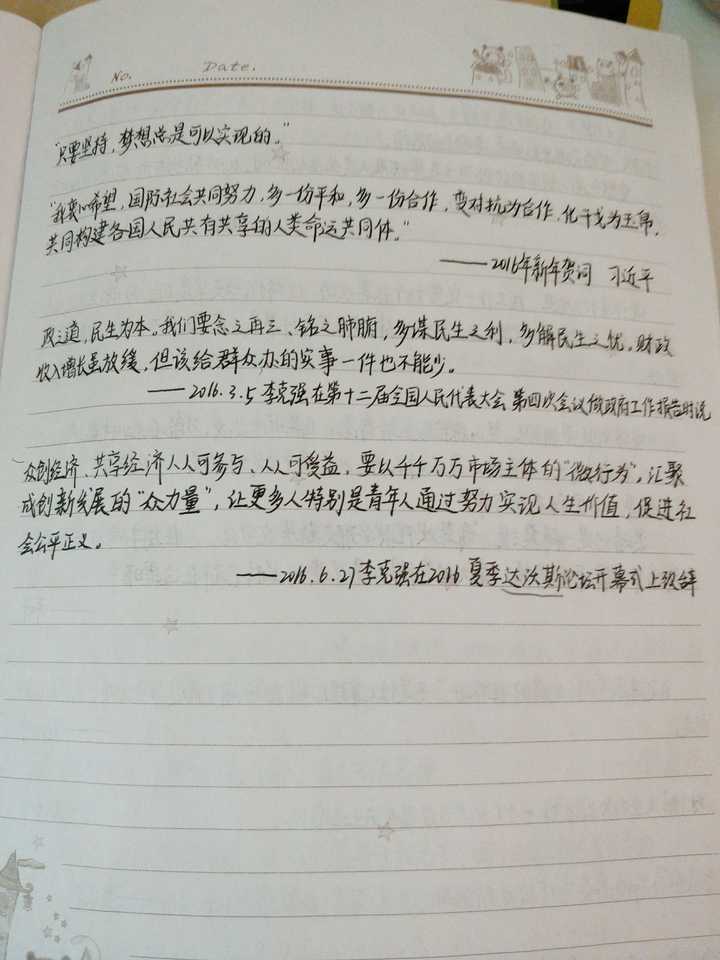 No.
Date.
"只要坚持,梦想总是可以实现的。"
"我衷心希望,国际社会共同努力,多一份平和,多一份合作,变对抗为合作,化干戈为玉帛,
共同构建各国人民共有共享的人类命运共同体。"
——2016年新年贺词 习近平
政之道,民生为本。我们要念之再三、铭之肺腑,多谋民生之利,多解民生之忧。财政
收入增长虽放缓,但该给群众办的实事一件也不能少。
——2016.3.5 李克强在第十二届全国人民代表大会 第四次会议做政府工作报告时说
众创经济、共享经济人人可参与、人人可受益,要以千千万万市场主体的"微行为",汇聚
成创新发展的"众力量",让更多人特别是青年人通过努力实现人生价值,促进社
会公平正义。
——2016.6.27 李克强在2016 夏季达沃斯论坛开幕式上致辞